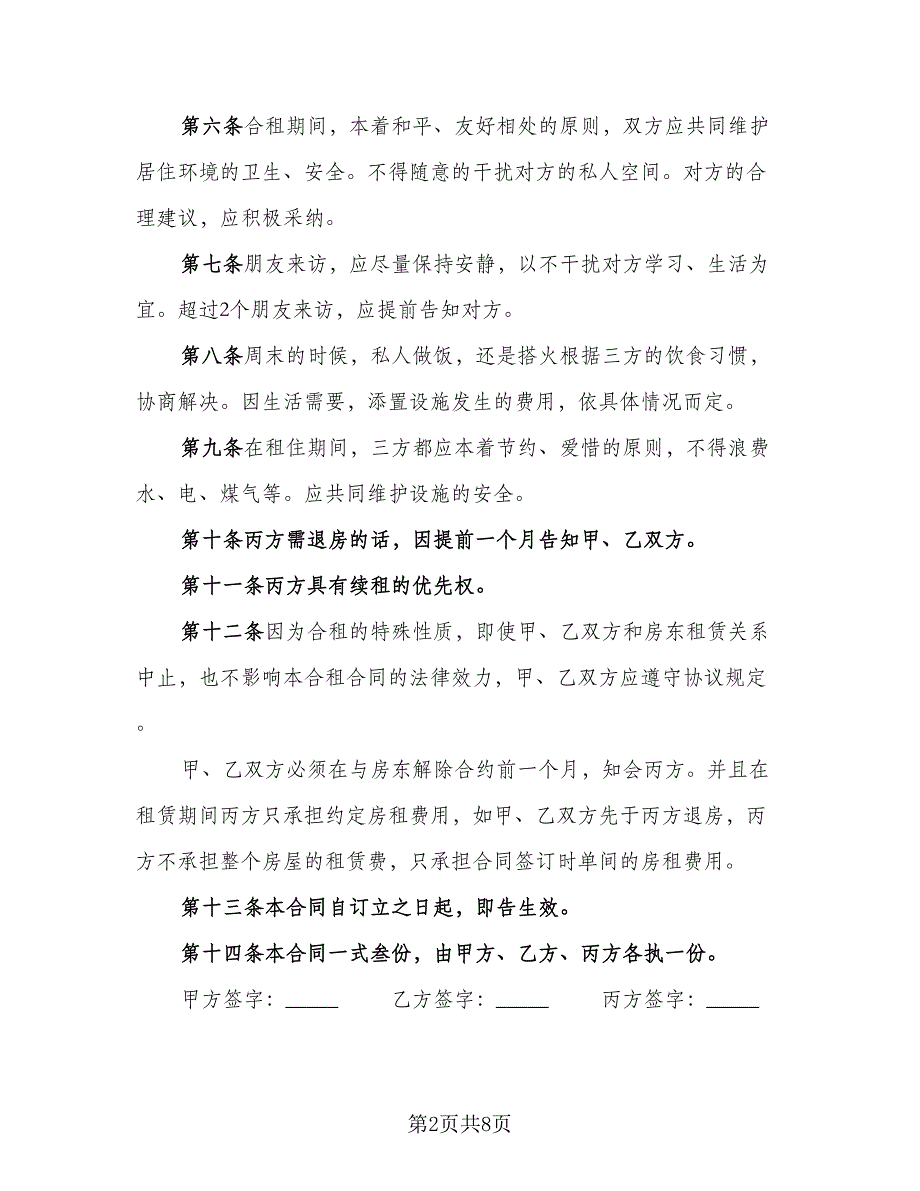 第六条合租期间，本着和平、友好相处的原则，双方应共同维护
居住环境的卫生、安全。不得随意的干扰对方的私人空间。对方的合
理建议，应积极采纳。
第七条朋友来访，应尽量保持安静，以不干扰对方学习、生活为
宜。超过2个朋友来访，应提前告知对方。
第八条周末的时候，私人做饭，还是搭火根据三方的饮食习惯，
协商解决。因生活需要，添置设施发生的费用，依具体情况而定。
第九条在租住期间，三方都应本着节约、爱惜的原则，不得浪费
水、电、煤气等。应共同维护设施的安全。
第十条丙方需退房的话，因提前一个月告知甲、乙双方。
第十一条丙方具有续租的优先权。
第十二条因为合租的特殊性质，即使甲、乙双方和房东租赁关系
中止，也不影响本合租合同的法律效力，甲、乙双方应遵守协议规定
。
甲、乙双方必须在与房东解除合约前一个月，知会丙方。并且在
租赁期间丙方只承担约定房租费用，如甲、乙双方先于丙方退房，丙
方不承担整个房屋的租赁费，只承担合同签订时单间的房租费用。
第十三条本合同自订立之日起，即告生效。
第十四条本合同一式叁份，由甲方、乙方、丙方各执一份。
甲方签字：_____ 乙方签字：_____ 丙方签字：_____
第2页共8页